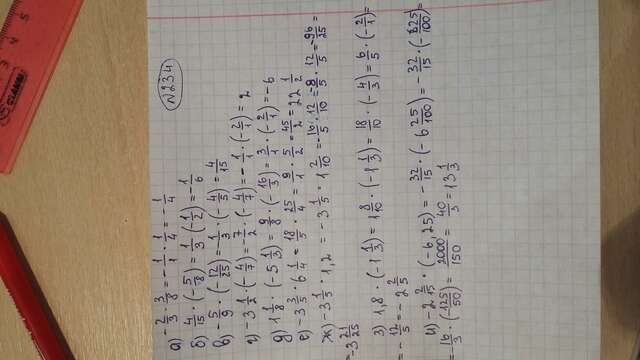 №234
а) -2/3 · 3/8 = -1/1 · 1/4 = -1/4
б) 4/15 · (-5/8) = 1/3 · (-1/2) = -1/6
в) -5/9 · (-12/25) = -1/3 · (-4/5) = 4/15
г) -3 1/2 · (-4/7) = -7/2 · (-4/7) = -1/1 · (-2/1) = 2
д) 1 1/8 · (-5 1/3) = 9/8 · (-16/3) = 3/1 · (-2/1) = -6
е) -3 3/5 · 6 1/4 = 18/5 · 25/4 = 9/1 · 5/2 = 45/2 = 22 1/2
ж) -3 1/5 · 1,2 = -3 1/5 · 1 2/10 = -16/5 · 12/10 = -8/5 · 12/5 = -96/25 =
= -3 21/25
з) 1,8 · (-1 1/3) = 1 8/10 · (-1 1/3) = 18/10 · (-4/3) = 6/5 · (-2/1) =
= -12/5 = -2 2/5
и) -2 2/15 · (-6,25) = -32/15 · (-6 25/100) = -32/15 · (-625/100) =
-16/3 · (-125/50) = 2000/150 = 40/3 = 13 1/3